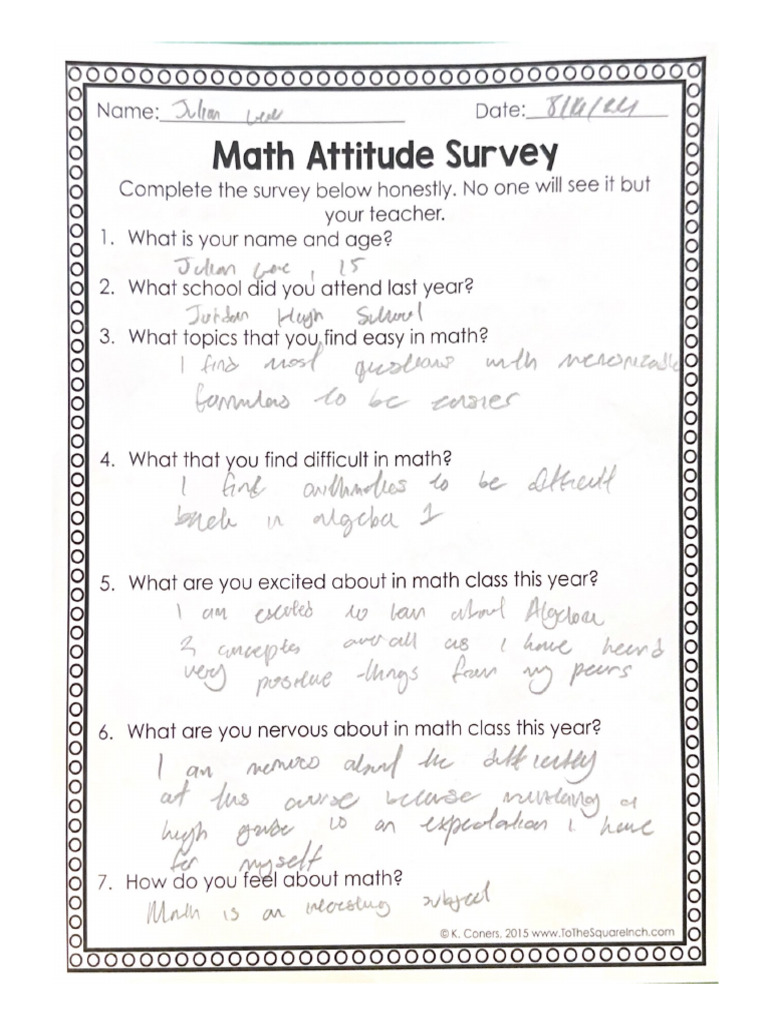 Name: Julian Lee Date: 8/14/24
Math Attitude Survey
Complete the survey below honestly. No one will see it but
your teacher.
1. What is your name and age?
Julian Lee, 15
2. What school did you attend last year?
Jordan High School
3. What topics that you find easy in math?
I find most questions with memorizable
formulas to be easier
4. What that you find difficult in math?
I find arithmetics to be difficult
back in algebra 1
5. What are you excited about in math class this year?
I am excited to learn about Algebra
2 concepts overall as I have heard
very positive things from my peers
6. What are you nervous about in math class this year?
I am nervous about the difficulty
of this course because maintaining a
high grade is an expectation I have
for myself
7. How do you feel about math?
Math is an interesting subject
© K. Coners, 2015 www.ToTheSquareInch.com